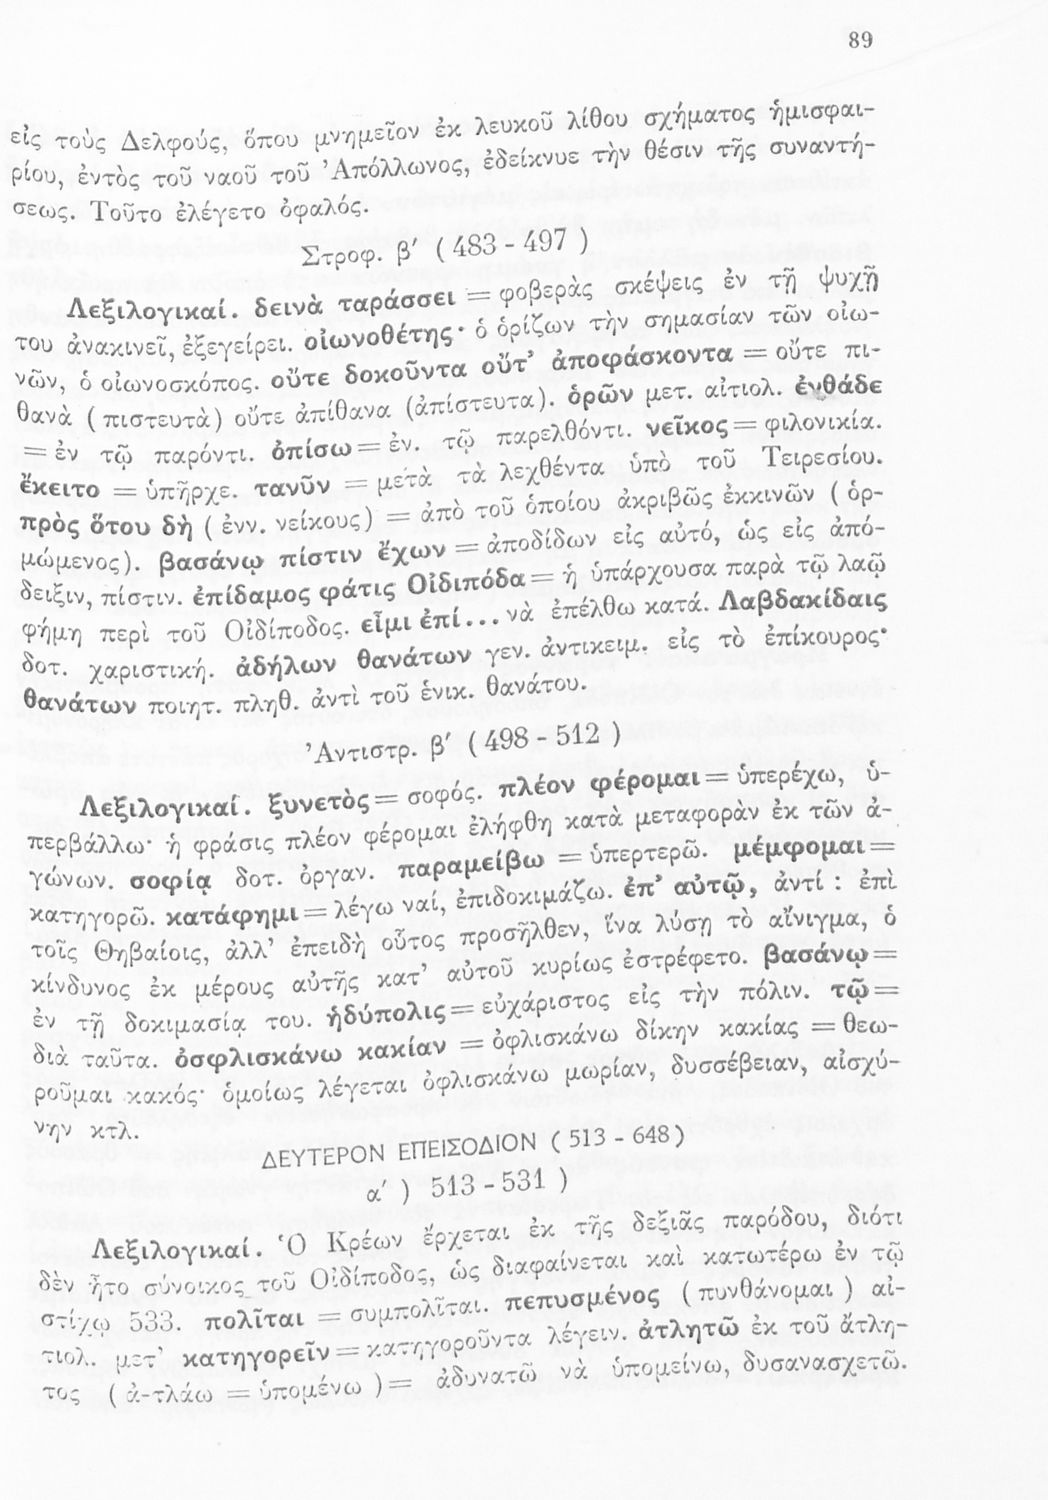 89
εἰς τοὺς Δελφούς, ὅπου μνημεῖον ἐκ λευκοῦ λίθου σχήματος ἡμισφαι-
ρίου, ἐντὸς τοῦ ναοῦ τοῦ Ἀπόλλωνος, ἐδείκνυε τὴν θέσιν τῆς συναντή-
σεως. Τοῦτο ἐλέγετο ὀφαλός.
Στροφ. β′ ( 483 - 497 )
Λεξιλογικαί. δεινὰ ταράσσει = φοβερὰς σκέψεις ἐν τῇ ψυχῇ
του ἀνακινεῖ, ἐξεγείρει. οἰωνοθέτης· ὁ ὁρίζων τὴν σημασίαν τῶν οἰω-
νῶν, ὁ οἰωνοσκόπος. οὔτε δοκοῦντα οὔτ’ ἀποφάσκοντα = οὔτε πι-
θανὰ ( πιστευτὰ) οὔτε ἀπίθανα (ἀπίστευτα). ὁρῶν μετ. αἰτιολ. ἐνθάδε
= ἐν τῷ παρόντι. ὀπίσω = ἐν. τῷ παρελθόντι. νεῖκος = φιλονικία.
ἔκειτο = ὑπῆρχε. τανῦν = μετὰ τὰ λεχθέντα ὑπὸ τοῦ Τειρεσίου.
πρὸς ὅτου δὴ ( ἐνν. νείκους) = ἀπὸ τοῦ ὁποίου ἀκριβῶς ἐκκινῶν ( ὁρ-
μώμενος). βασάνῳ πίστιν ἔχων = ἀποδίδων εἰς αὐτό, ὡς εἰς ἀπό-
δειξιν, πίστιν. ἐπίδαμος φάτις Οἰδιπόδα = ἡ ὑπάρχουσα παρὰ τῷ λαῷ
φήμη περὶ τοῦ Οἰδίποδος. εἶμι ἐπί... νὰ ἐπέλθω κατά. Λαβδακίδαις
δοτ. χαριστική. ἀδήλων θανάτων γεν. ἀντικειμ. εἰς τὸ ἐπίκουρος·
θανάτων ποιητ. πληθ. ἀντὶ τοῦ ἑνικ. θανάτου.
Ἀντιστρ. β′ ( 498 - 512 )
Λεξιλογικαί. ξυνετὸς = σοφός. πλέον φέρομαι = ὑπερέχω, ὑ-
περβάλλω· ἡ φράσις πλέον φέρομαι ἐλήφθη κατὰ μεταφορὰν ἐκ τῶν ἀ-
γώνων. σοφίᾳ δοτ. ὀργαν. παραμείβω = ὑπερτερῶ. μέμφομαι =
κατηγορῶ. κατάφημι = λέγω ναί, ἐπιδοκιμάζω. ἐπ’ αὐτῷ, ἀντί : ἐπὶ
τοῖς Θηβαίοις, ἀλλ’ ἐπειδὴ οὗτος προσῆλθεν, ἵνα λύσῃ τὸ αἴνιγμα, ὁ
κίνδυνος ἐκ μέρους αὐτῆς κατ’ αὐτοῦ κυρίως ἐστρέφετο. βασάνῳ =
ἐν τῇ δοκιμασίᾳ του. ἡδύπολις = εὐχάριστος εἰς τὴν πόλιν. τῷ =
διὰ ταῦτα. ὀσφλισκάνω κακίαν = ὀφλισκάνω δίκην κακίας = θεω-
ροῦμαι κακός· ὁμοίως λέγεται ὀφλισκάνω μωρίαν, δυσσέβειαν, αἰσχύ-
νην κτλ.
ΔΕΥΤΕΡΟΝ ΕΠΕΙΣΟΔΙΟΝ ( 513 - 648)
α′ ) 513 - 531 )
Λεξιλογικαί. Ὁ Κρέων ἔρχεται ἐκ τῆς δεξιᾶς παρόδου, διότι
δὲν ἦτο σύνοικος τοῦ Οἰδίποδος, ὡς διαφαίνεται καὶ κατωτέρω ἐν τῷ
στίχῳ 533. πολῖται = συμπολῖται. πεπυσμένος ( πυνθάνομαι ) αἰ-
τιολ. μετ’ κατηγορεῖν = κατηγοροῦντα λέγειν. ἀτλητῶ ἐκ τοῦ ἄτλη-
τος ( ἀ-τλάω = ὑπομένω ) = ἀδυνατῶ νὰ ὑπομείνω, δυσανασχετῶ.